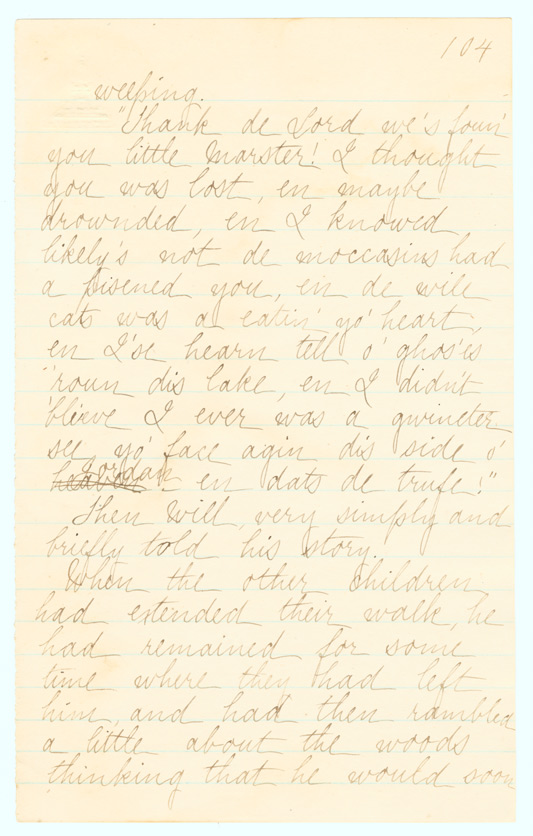 104
weeping.
"Thank de Lord we's foun'
you little Marster! I thought
you was lost, en maybe
drownded, en I knowed
likely's not de moccasins had
a pisened you, en de wile
cats was a eatin' yo' heart,
en I'se hearn tell o' ghos'es
'roun dis lake, en I didn't
'blieve I ever was a gwineter
see yo' face agin dis side o'
Jordan
heaven en dats de trufe!"
Then Will, very simply and
briefly told his story.
When the other children
had extended their walk, he
had remained for some
time where they had left
him, and had then rambled
a little about the woods
thinking that he would soon